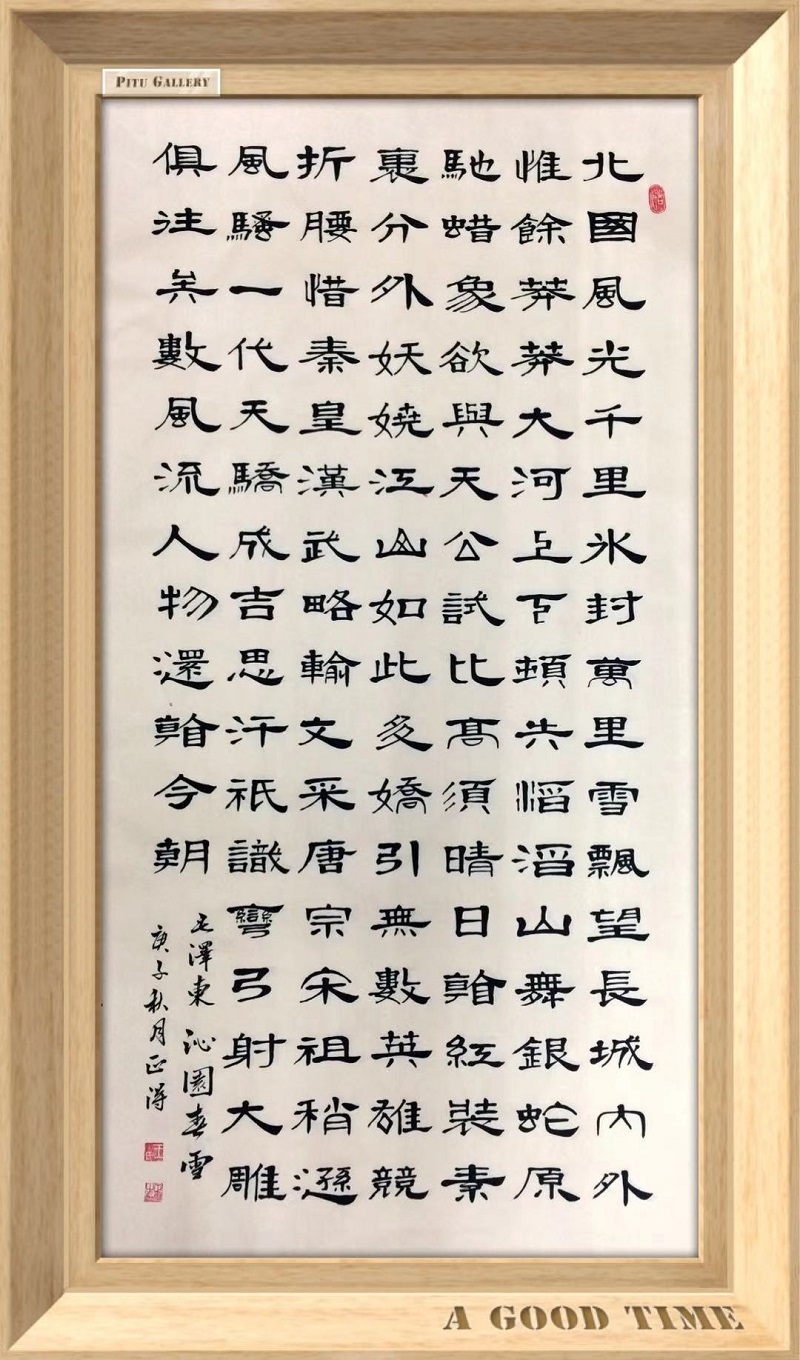 PITU GALLERY
北國風光千里氷封萬里雪飄望長城內外
惟餘莽莽大河上下頓失滔滔山舞銀蛇原
馳蜡象欲與天公試比高須晴日看紅裝素
裹分外妖嬈江山如此多嬌引無數英雄競
折腰惜秦皇漢武略輸文采唐宗宋祖稍遜
風騷一代天驕成吉思汗祇識彎弓射大雕
俱往矣數風流人物還看今朝
毛澤東 沁園春雪
庚子秋月正得
A GOOD TIME